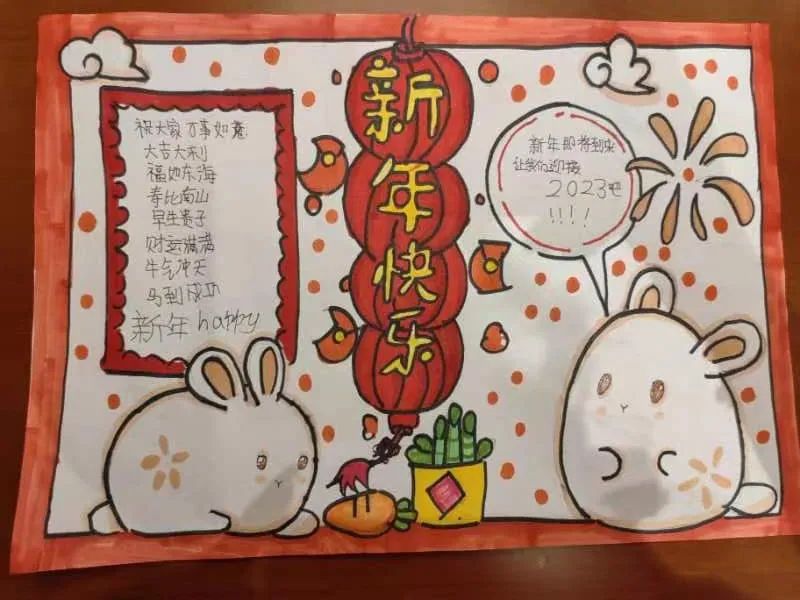 祝大家万事如意
大吉大利
福如东海
寿比南山
早生贵子
财运满满
牛气冲天
马到成功
新年happy
新年快乐
新年即将到来
让我们迎接
2023吧
!!!!